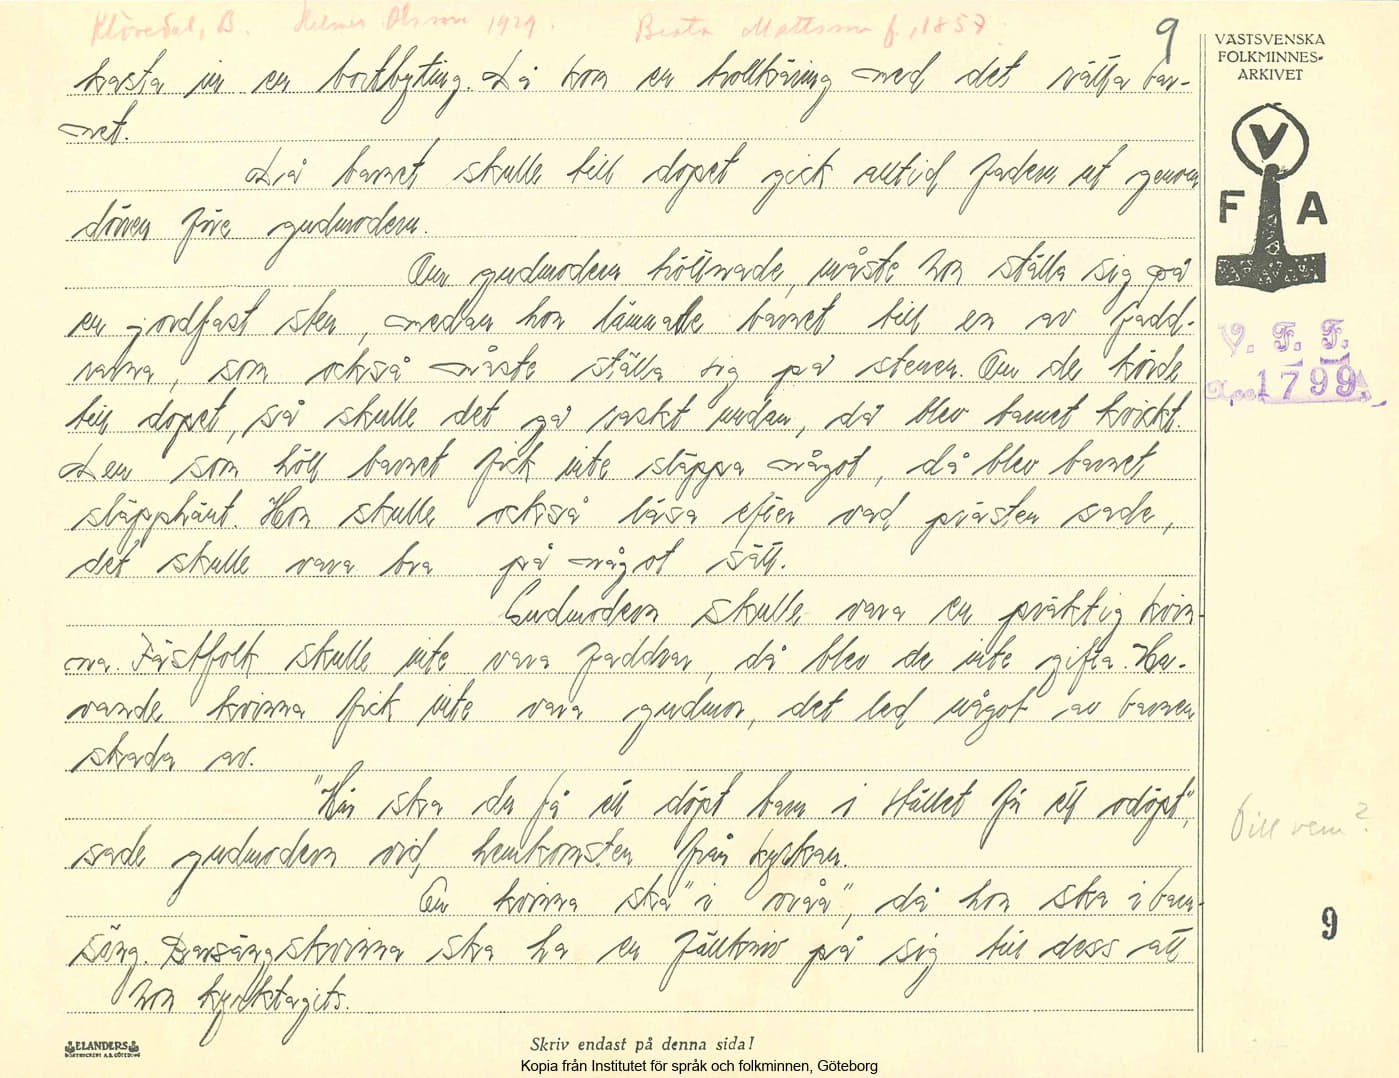 Klövedal, B. Helmer Olsson 1929. Beata Mattsson f. 1857
9
VÄSTSVENSKA
FOLKMINNES-
ARKIVET
kasta in en bortbyting. Då kom en trollkäring med det rätta bar-
net.
Då barnet skulle till dopet gick alltid fadern ut genom
dörren före gudmodern.
Om gudmodern tröttnade, måste hon ställa sig på
en jordfast sten, medan hon lämnade barnet till en av fadd-
rarna, som också måste ställa sig på stenen. Om de körde
till dopet, så skulle det gå raskt undan, då blev barnet kvickt.
Den som höll barnet fick inte släppa något, då blev barnet
släpphänt. Hon skulle också läsa efter vad prästen sade,
det skulle vara bra på något sätt.
Gudmodern skulle vara en präktig kvin-
na. Fästfolk skulle inte vara faddrar, då blev de inte gifta. Ha-
vande kvinna fick inte vara gudmor, det led något av barnen
skada av.
"Här ska du få ett döpt barn i stället för ett odöpt",
sade gudmodern vid hemkomsten från kyrkan.
En kvinna ska "i vråa", då hon ska i barn-
säng. Barsängskvinna ska ha en fällkniv på sig till dess att
hon kyrktagits.
V
F A
V. F. F.
Acc. 1799
Till vem?
9
ELANDERS
BOKTRYCKERI A.B. GÖTEBORG
Skriv endast på denna sida!
Kopia från Institutet för språk och folkminnen, Göteborg